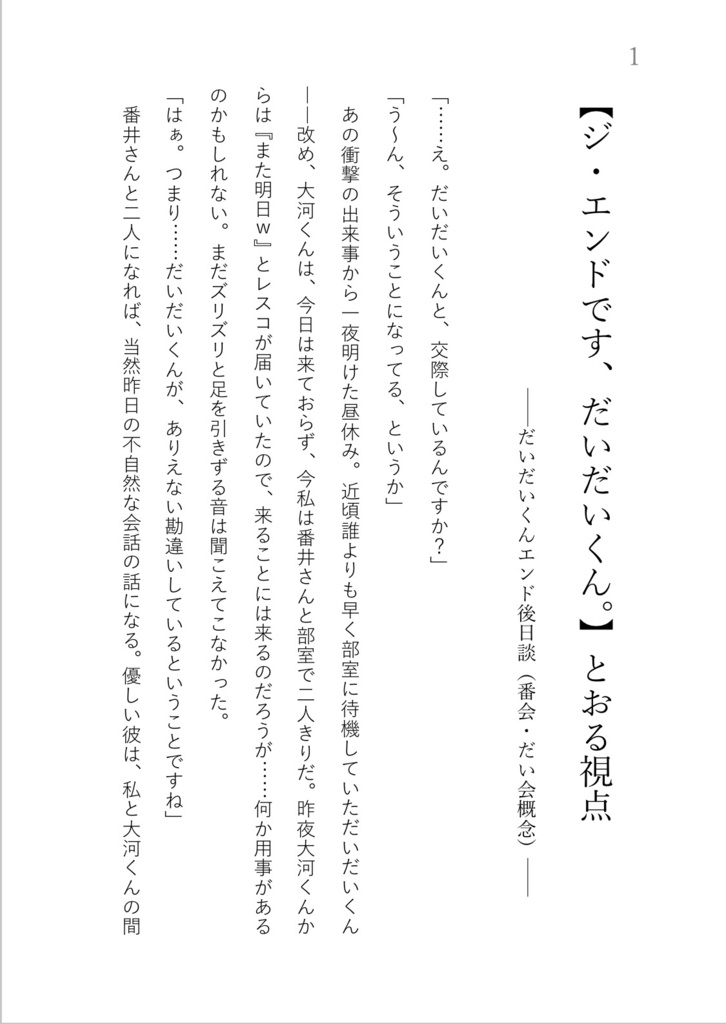 1
【ジ・エンドです、だいだいくん。】とおる視点
――だいだいくんエンド後日談（番会・だい会概念）――
「……え。だいだいくんと、交際しているんですか？」
「う〜ん、そういうことになってる、というか」
あの衝撃の出来事から一夜明けた昼休み。近頃誰よりも早く部室に待機していただいだいくん
――改め、大河くんは、今日は来ておらず、今私は番井さんと部室で二人きりだ。昨夜大河くんか
らは『また明日ｗ』とレスコが届いていたので、来ることには来るのだろうが……何か用事がある
のかもしれない。まだズリズリと足を引きずる音は聞こえてこなかった。
「はぁ。つまり……だいだいくんが、ありえない勘違いしているということですね」
番井さんと二人になれば、当然昨日の不自然な会話の話になる。優しい彼は、私と大河くんの間